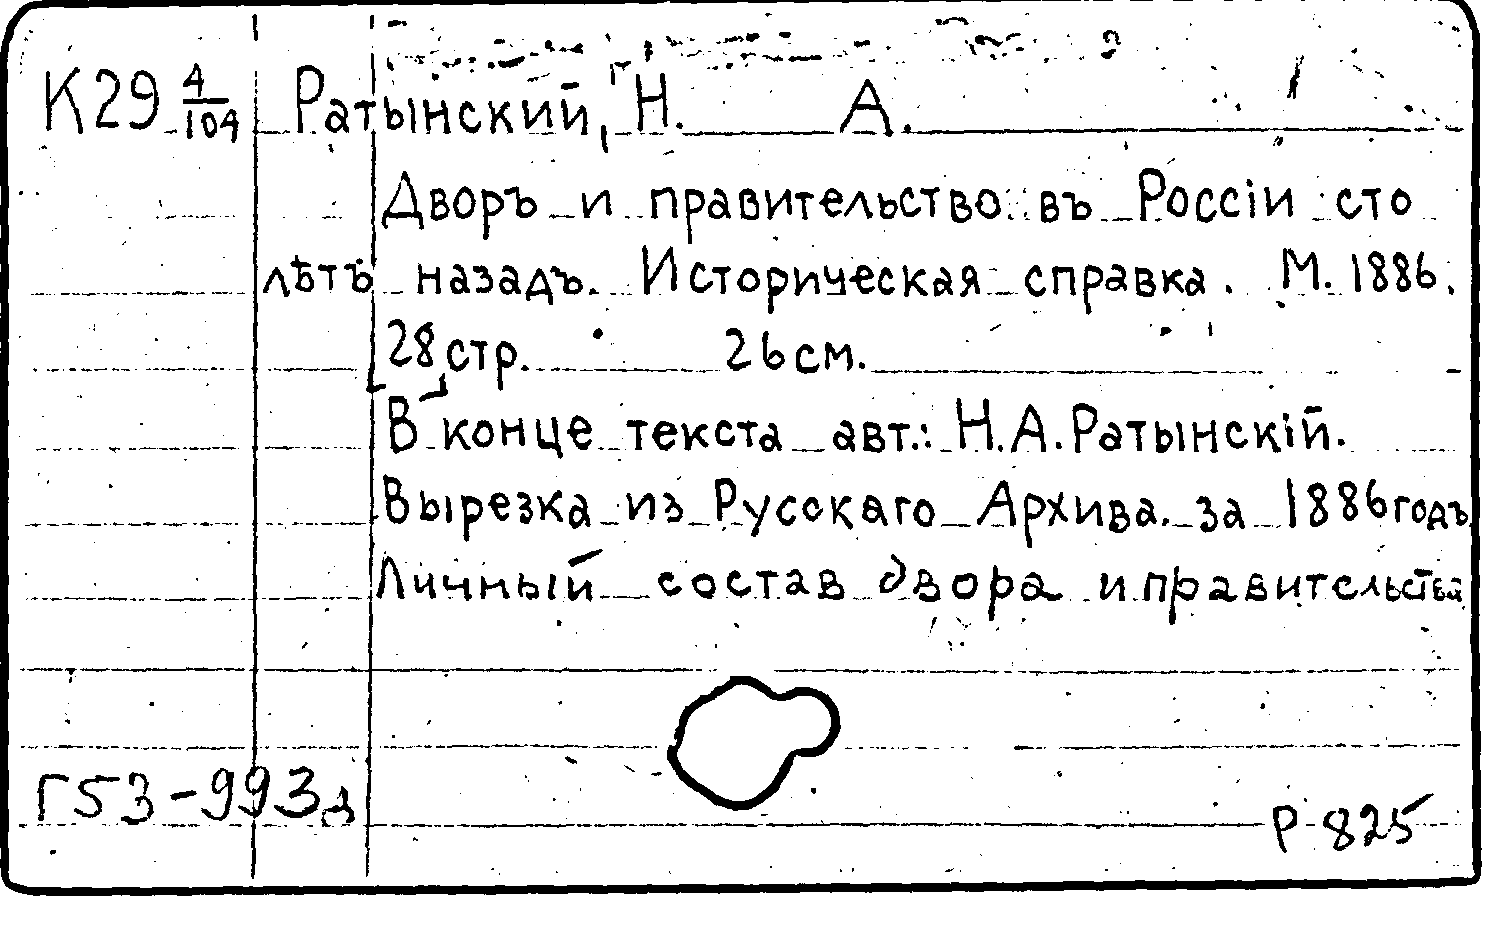 К29 4/104 Ратынский, Н. А.
Дворъ и правительство въ Россіи сто
лѣтъ назадъ. Историческая справка. М. 1886.
28 стр. 26 см.
В конце текста авт.: Н.А.Ратынскій.
Вырезка из Русскаго Архива за 1886 годъ
Личный состав двора и правительства
Г53-993д
Р-825